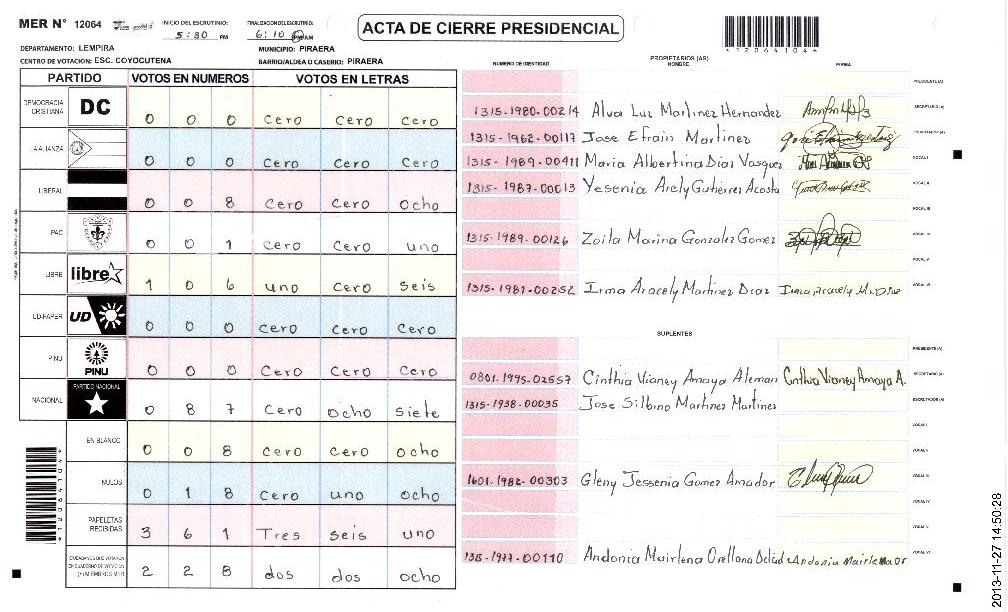 MER N° 12064
INICIO DEL ESCRUTINIO:
5:30 PM
FINALIZACION DEL ESCRUTINIO:
6:10 PM AM
ACTA DE CIERRE PRESIDENCIAL
*1206410 4*
DEPARTAMENTO: LEMPIRA
MUNICIPIO: PIRAERA
CENTRO DE VOTACION: ESC. COYOCUTENA
BARRIO/ALDEA O CASERIO: PIRAERA
PARTIDO VOTOS EN NUMEROS VOTOS EN LETRAS
DEMOCRACIA CRISTIANA DC 0 0 0 cero cero cero
LA ALIANZA 0 0 0 cero cero cero
LIBERAL 0 0 8 cero cero ocho
PAC 0 0 1 cero cero uno
LIBRE libre 1 0 6 uno cero seis
UD-FAPER UD 0 0 0 cero cero cero
PINU PINU 0 0 0 cero cero cero
NACIONAL PARTIDO NACIONAL 0 8 7 cero ocho siete
EN BLANCO 0 0 8 cero cero ocho
NULOS 0 1 8 cero uno ocho
PAPELETAS RECIBIDAS 3 6 1 Tres seis uno
CIUDADANOS QUE VOTARON EN CUADERNO DE VOTACION (+) MIEMBROS MER 2 2 8 dos dos ocho
NUMERO DE IDENTIDAD PROPIETARIOS (AS) NOMBRE FIRMA
PRESIDENTE (A)
1315-1980-00214 Alva Luz Martinez Hernandez SECRETARIO (A)
1315-1962-00117 Jose Efrain Martinez ESCRUTADOR (A)
1315-1989-00411 Maria Albertina Diaz Vasquez VOCAL I
1315-1987-00013 Yesenia Arely Gutiérres Acosta VOCAL II
VOCAL III
1315-1989-00126 Zoila Marina Gonzalez Gomez VOCAL IV
VOCAL V
1315-1981-00252 Irma Aracely Martinez Diaz VOCAL VI
SUPLENTES
PRESIDENTE (A)
0801-1995-02557 Cinthia Vianey Amaya Aleman Cnthia Vianey Amaya A. SECRETARIO (A)
1315-1938-00035 Jose Silbino Martinez Martinez ESCRUTADOR (A)
VOCAL I
VOCAL II
1601-1982-00303 Gleny Jessenia Gomez Amador VOCAL III
VOCAL IV
VOCAL V
1315-1977-00110 Andonia Mairlena Orellana VOCAL VI
2013-11-27 14:50:28